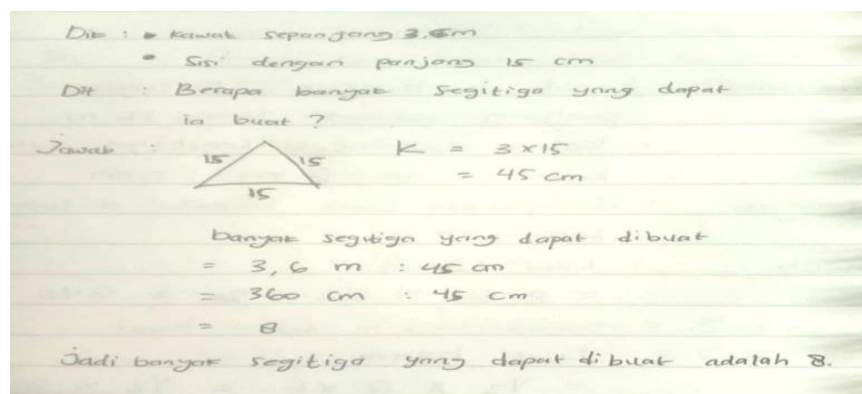 Dik : • Kawat sepanjang 3,6m
• Sisi dengan panjang 15 cm
Dit : Berapa banyak segitiga yang dapat
ia buat ?
Jawab :
15 15
15
K = 3 x 15
= 45 cm
banyak segitiga yang dapat dibuat
= 3,6 m : 45 cm
= 360 cm : 45 cm
= 8
Jadi banyak segitiga yang dapat dibuat adalah 8.